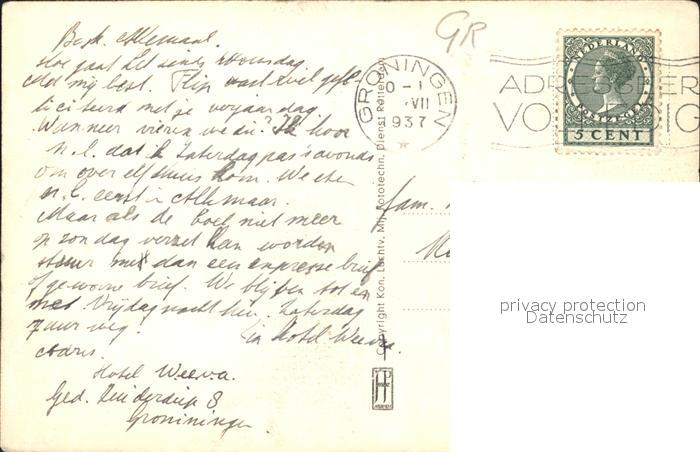 Allemaal.
Hoe gaat het
Met mij best. Flip
met je verjaardag
Wanneer vieren we die? Ik hoor
n.l. dat ik Zaterdag pas 's avonds
om over elf thuis kom. We eten
n.l. eerst in Alkmaar.
Maar als de boel niet meer
op zondag verzet kan worden
stuur me dan een expresse brief
of gewone brief. We blijven tot en
met Vrijdagnacht hier. Zaterdag
7 uur weg. in Hotel Weeva.
Hotel Weeva.
Ged. Zuiderdiep 8
Groningen
GR
GRONINGEN
VII
1937
NEDERLAND
5 CENT
Copyright Kon. Luchtv. Mij. Fototechn. Dienst Rotterdam
fam.
privacy protection
Datenschutz